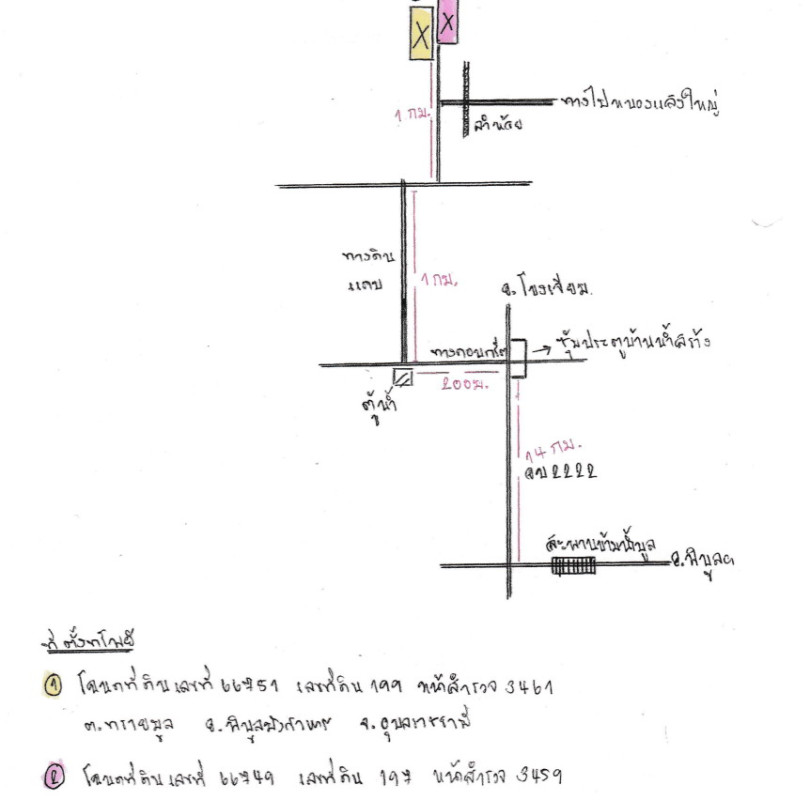 X X
ทางไปหนองแสงใหญ่
1 กม.
ลำห้วย
ทางดิน
แคบ
1 กม.
อ.โขงเจียม
ทางคอนกรีต
ซุ้มประตูบ้านน้ำสร้าง
200 ม.
ตู้น้ำ
14 กม.
อบ 2222
สะพานข้ามน้ำมูล
อ.พิบูลฯ
ที่ตั้งทรัพย์
1 โฉนดที่ดินเลขที่ 66751 เลขที่ดิน 199 หน้าสำรวจ 3461
ต.ทรายมูล อ.พิบูลมังสาหาร จ.อุบลราชธานี
2 โฉนดที่ดินเลขที่ 66749 เลขที่ดิน 197 หน้าสำรวจ 3459